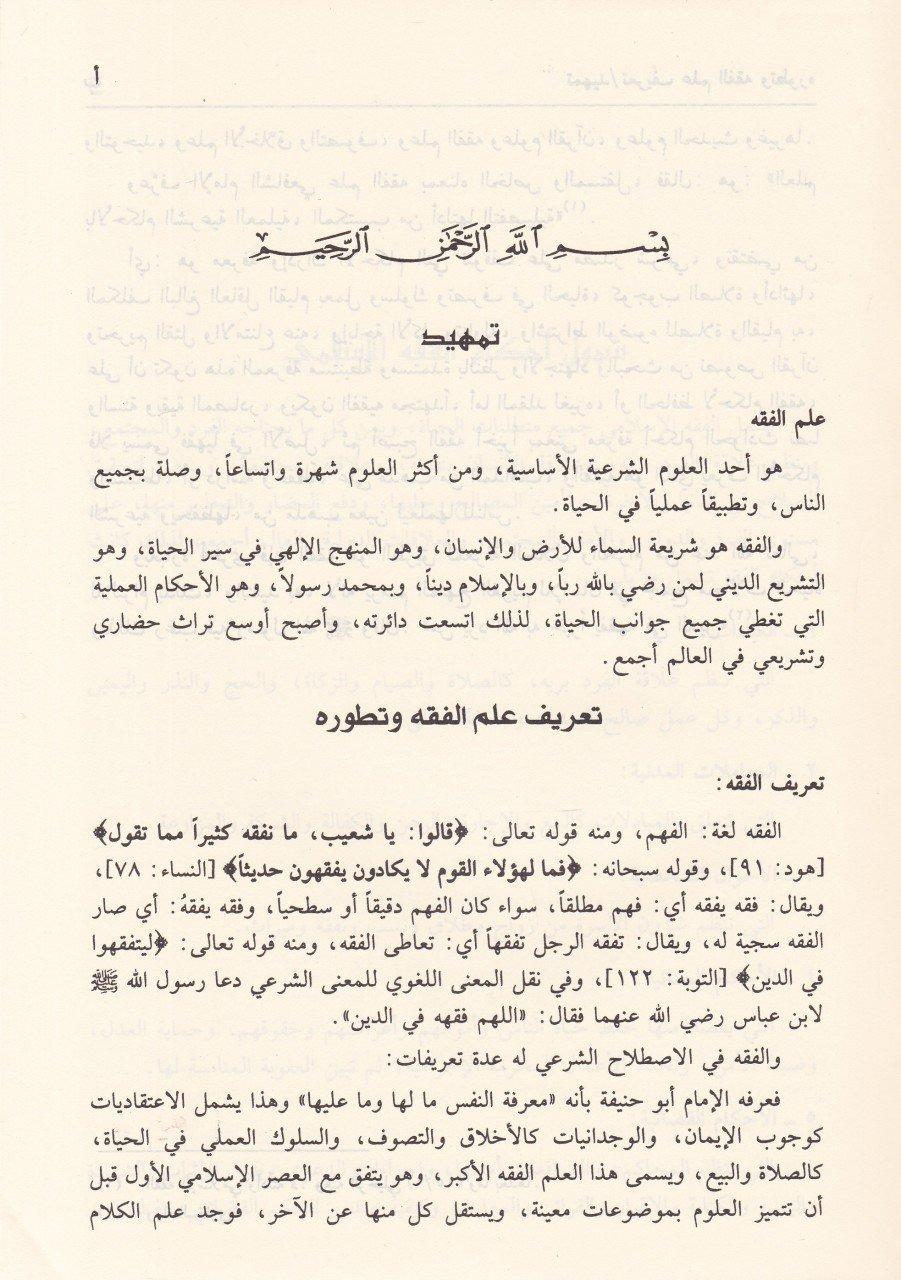 أ
بِسْمِ اللَّهِ الرَّحْمَنِ الرَّحِيمِ
تمهيد
علم الفقه
هو أحد العلوم الشرعية الأساسية، ومن أكثر العلوم شهرة واتساعاً، وصلة بجميع
الناس، وتطبيقاً عملياً في الحياة.
والفقه هو شريعة السماء للأرض والإنسان، وهو المنهج الإلهي في سير الحياة، وهو
التشريع الديني لمن رضي بالله رباً، وبالإسلام ديناً، وبمحمد رسولاً، وهو الأحكام العملية
التي تغطي جميع جوانب الحياة، لذلك اتسعت دائرته، وأصبح أوسع تراث حضاري
وتشريعي في العالم أجمع.
تعريف علم الفقه وتطوره
تعريف الفقه:
الفقه لغة: الفهم، ومنه قوله تعالى: ﴿قالوا: يا شعيب، ما نفقه كثيراً مما تقول﴾
[هود: ٩١]، وقوله سبحانه: ﴿فما لهؤلاء القوم لا يكادون يفقهون حديثاً﴾ [النساء: ٧٨]،
ويقال: فقه يفقه أي: فهم مطلقاً، سواء كان الفهم دقيقاً أو سطحياً، وفقه يفقهُ: أي صار
الفقه سجية له، ويقال: تفقه الرجل تفقهاً أي: تعاطى الفقه، ومنه قوله تعالى: ﴿ليتفقهوا
في الدين﴾ [التوبة: ١٢٢]، وفي نقل المعنى اللغوي للمعنى الشرعي دعا رسول الله ﷺ
لابن عباس رضي الله عنهما فقال: «اللهم فقهه في الدين».
والفقه في الاصطلاح الشرعي له عدة تعريفات:
فعرفه الإمام أبو حنيفة بأنه «معرفة النفس ما لها وما عليها» وهذا يشمل الاعتقاديات
كوجوب الإيمان، والوجدانيات كالأخلاق والتصوف، والسلوك العملي في الحياة،
كالصلاة والبيع، ويسمى هذا العلم الفقه الأكبر، وهو يتفق مع العصر الإسلامي الأول قبل
أن تتميز العلوم بموضوعات معينة، ويستقل كل منها عن الآخر، فوجد علم الكلام